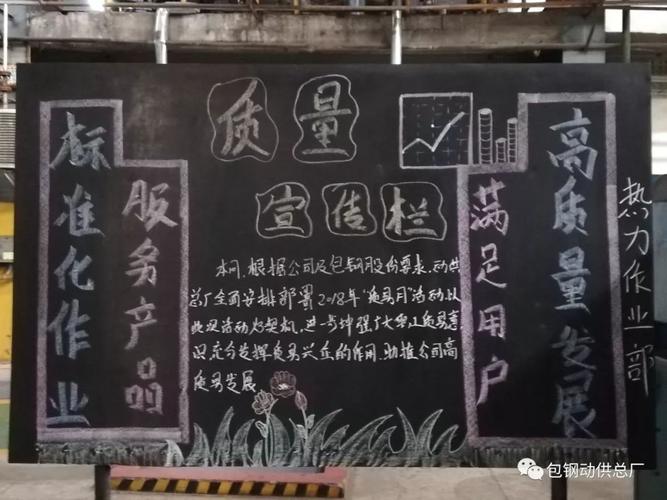 质量
宣传栏
标准化作业
服务产品
本月，根据公司及包钢股份要求，动供
总厂全面安排部署2018年“质量月”活动以
此次活动为契机，进一步增强广大职工质量意
识充分发挥质量兴企的作用，助推公司高
质量发展
满足用户
高质量发展
热力作业部
包钢动供总厂